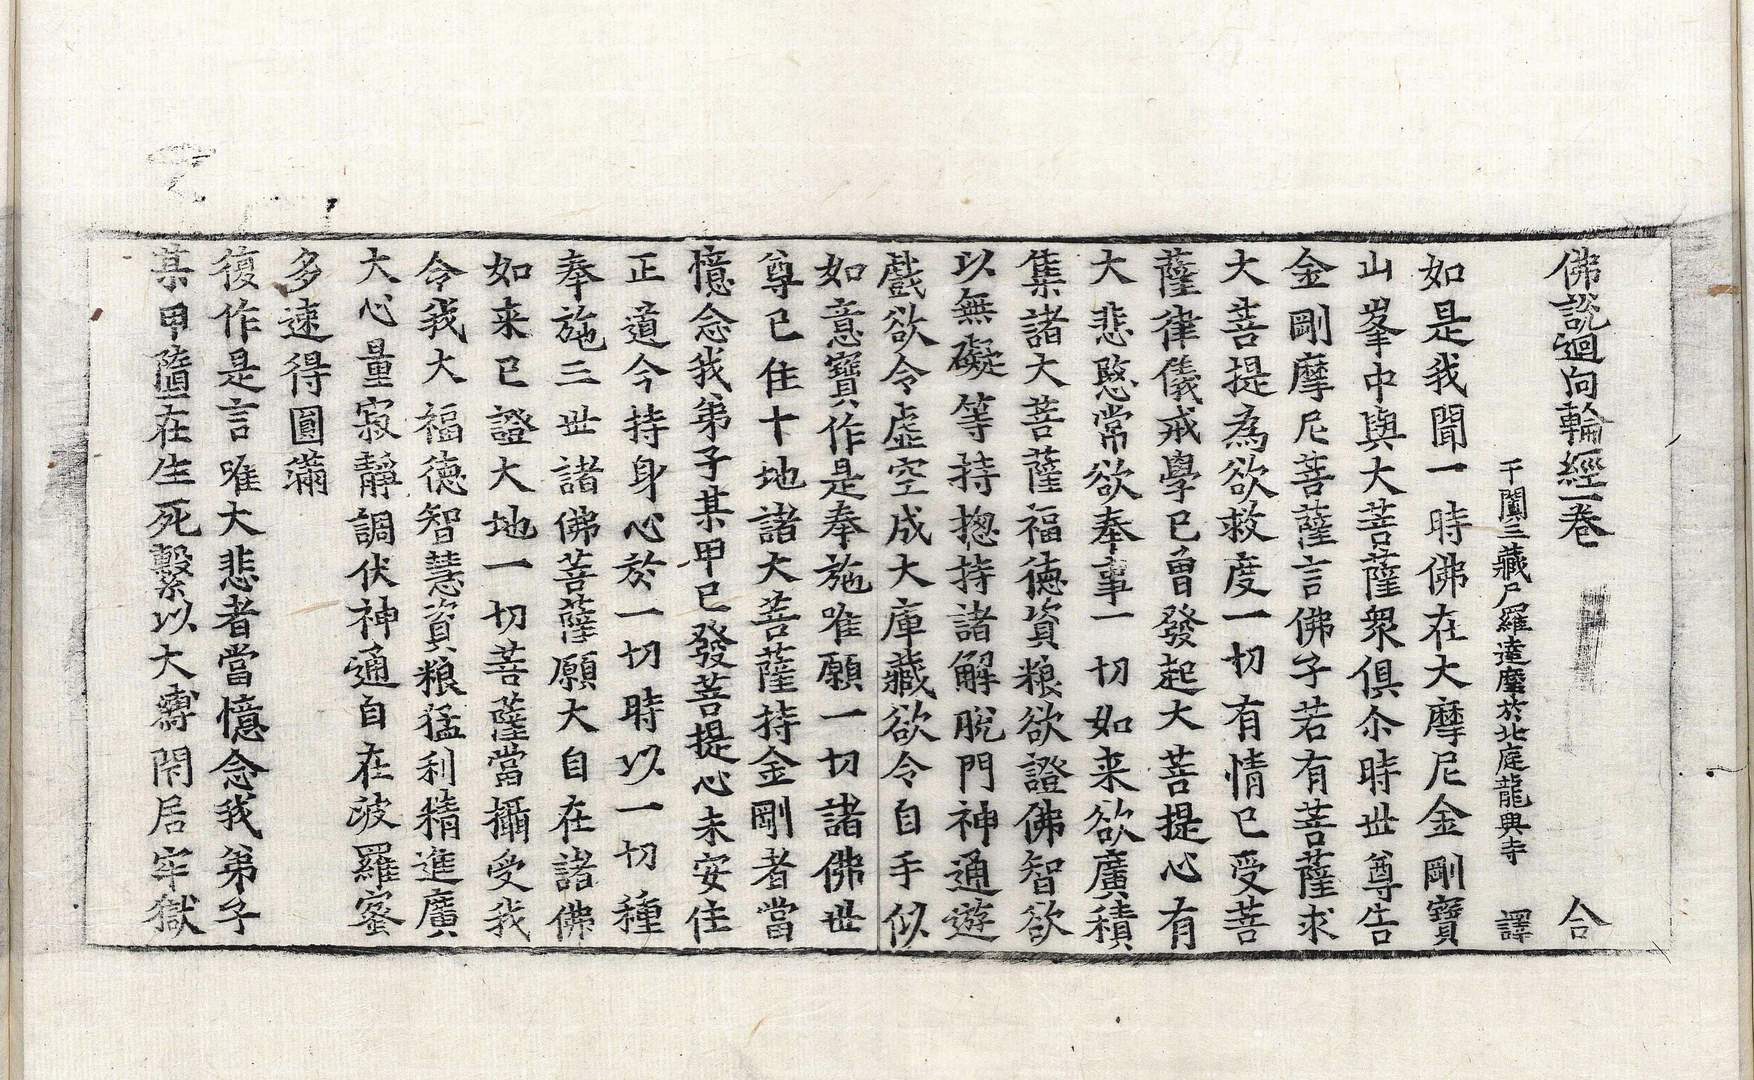 佛說迴向輪經一卷 合
于闐三藏尸羅達摩於北庭龍興寺 譯
如是我聞一時佛在大摩尼金剛寶
山峯中與大菩薩眾俱尒時世尊告
金剛摩尼菩薩言佛子若有菩薩求
大菩提為欲救度一切有情已受菩
薩律儀戒學已曾發起大菩提心有
大悲愍常欲奉事一切如来欲廣積
集諸大菩薩福德資粮欲證佛智欲
以無礙等持揔持諸解脫門神通遊
戲欲令虛空成大庫藏欲令自手似
如意寶作是奉施唯願一切諸佛世
尊已住十地諸大菩薩持金剛者當
憶念我弟子某甲已發菩提心未安住
正道今持身心於一切時以一切種
奉施三世諸佛菩薩願大自在諸佛
如来已證大地一切菩薩當攝受我
令我大福德智慧資粮猛利精進廣
大心量寂靜調伏神通自在波羅蜜
多速得圓滿
復作是言唯大悲者當憶念我弟子
某甲墮在生死繫以大縛閇居牢獄